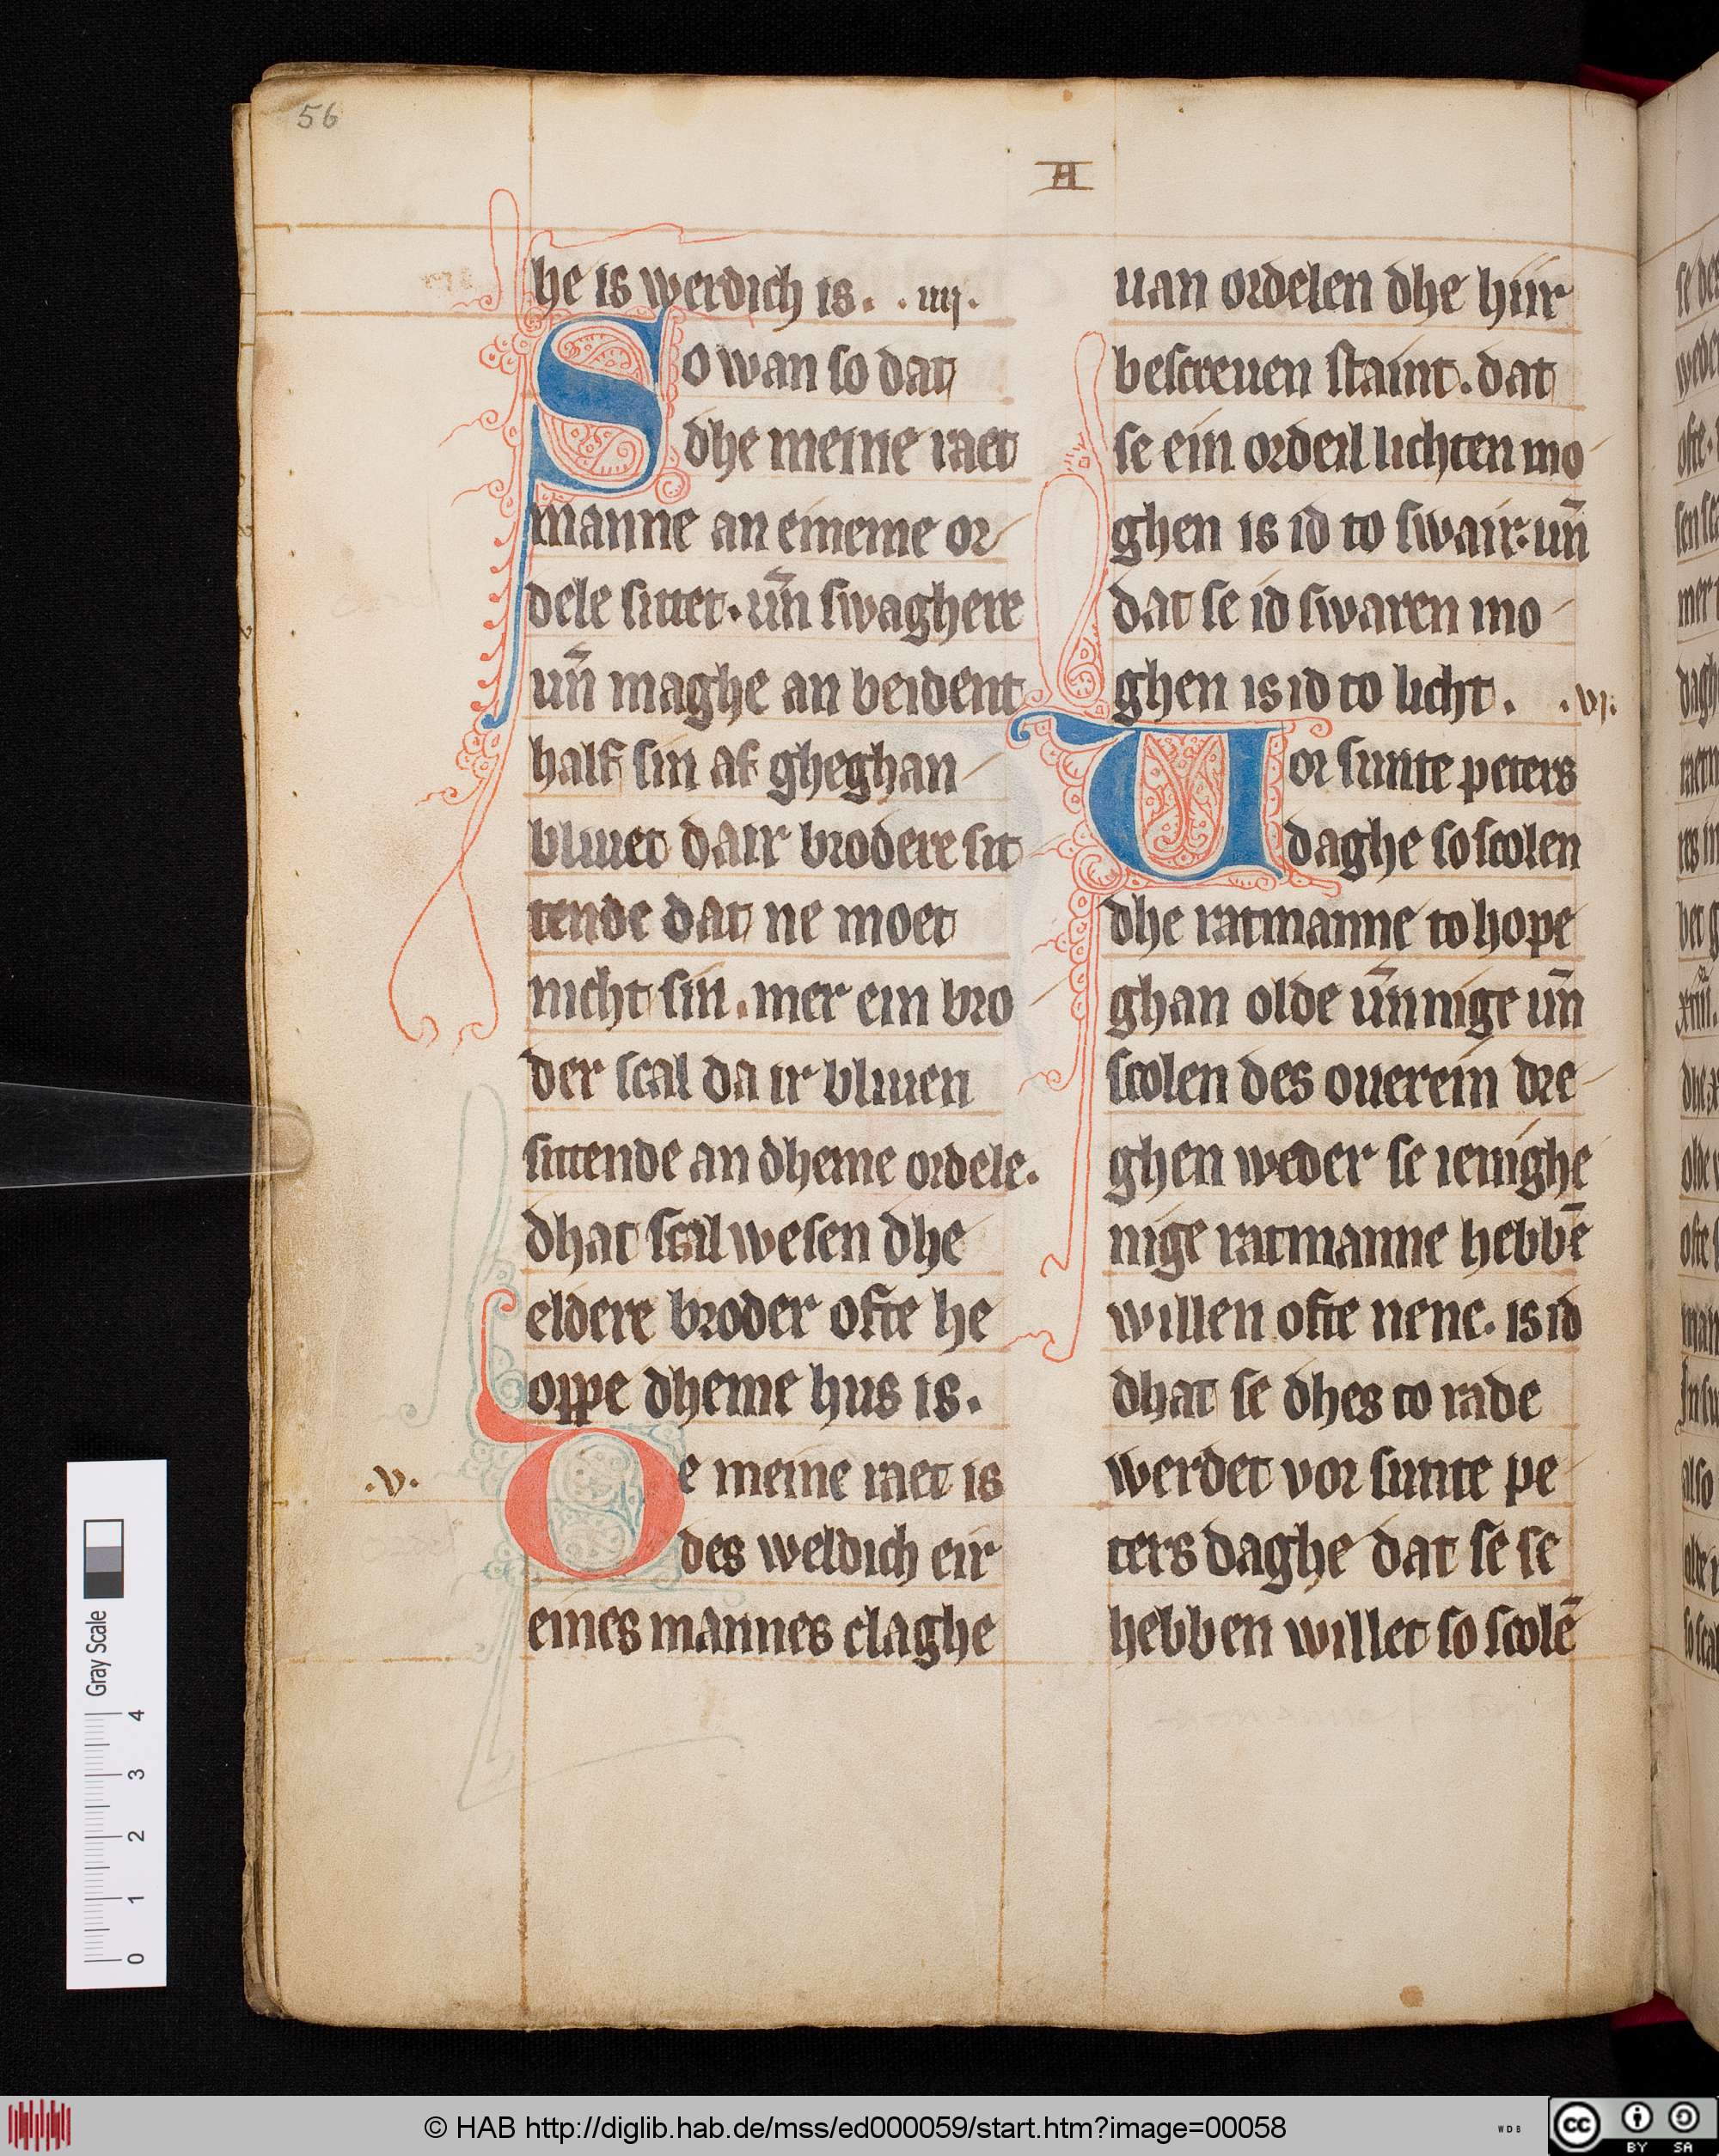 56
A
he is werdich is. .iiij.
So wan so dat
dhe meine raet
manne an eineme or
dele sittet. un̄ swaghere
un̄ maghe an beident
half sin af gheghan
bliuet dair brodere sit
tende dat ne moet
nicht sin. mer ein bro
der scal da ir bliuen
sittende an dheme ordele.
dhat scal wesen dhe
eldere broder ofte he
oppe dheme hus is.
.v.
De meine raet is
des weldich eir
eines mannes claghe
uan ordelen dhe hiir
bescreuen staint. dat
se ein ordeil lichten mo
ghen is id to swair. un̄
dat se id swaren mo
ghen is id to licht. .vj.
Uor sunte peters
daghe so scolen
dhe ratmanne to hope
ghan olde un̄ nige un̄
scolen des ouerein dre
ghen weder se ienighe
nige ratmanne hebbē
willen ofte nene. is id
dhat se dhes to rade
werdet vor sunte pe
ters daghe dat se se
hebben willet so scolē
Gray Scale
0 1 2 3 4
© HAB http://diglib.hab.de/mss/ed000059/start.htm?image=00058
WDB
cc BY SA